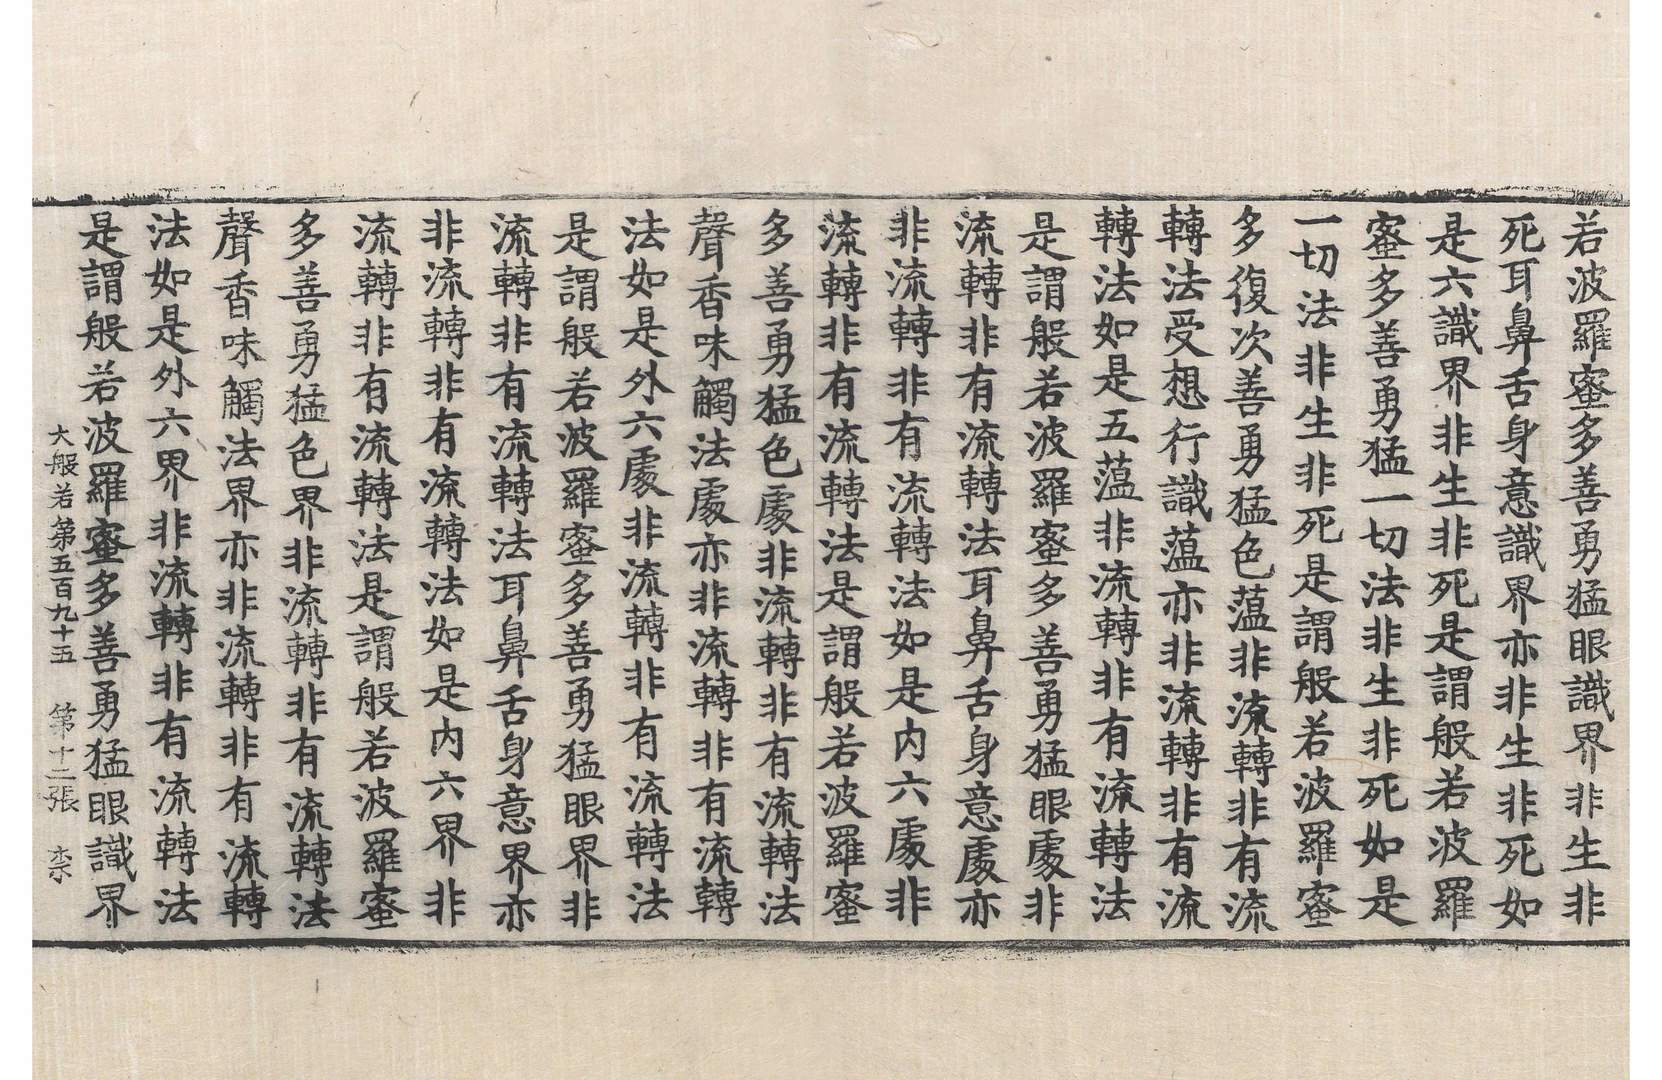 若波羅蜜多善勇猛眼識界非生非
死耳鼻舌身意識界亦非生非死如
是六識界非生非死是謂般若波羅
蜜多善勇猛一切法非生非死如是
一切法非生非死是謂般若波羅蜜
多復次善勇猛色薀非流轉非有流
轉法受想行識薀亦非流轉非有流
轉法如是五薀非流轉非有流轉法
是謂般若波羅蜜多善勇猛眼處非
流轉非有流轉法耳鼻舌身意處亦
非流轉非有流轉法如是内六處非
流轉非有流轉法是謂般若波羅蜜
多善勇猛色處非流轉非有流轉法
聲香味觸法處亦非流轉非有流轉
法如是外六處非流轉非有流轉法
是謂般若波羅蜜多善勇猛眼界非
流轉非有流轉法耳鼻舌身意界亦
非流轉非有流轉法如是内六界非
流轉非有流轉法是謂般若波羅蜜
多善勇猛色界非流轉非有流轉法
聲香味觸法界亦非流轉非有流轉
法如是外六界非流轉非有流轉法
是謂般若波羅蜜多善勇猛眼識界
大般若第五百九十五 第十二張 柰